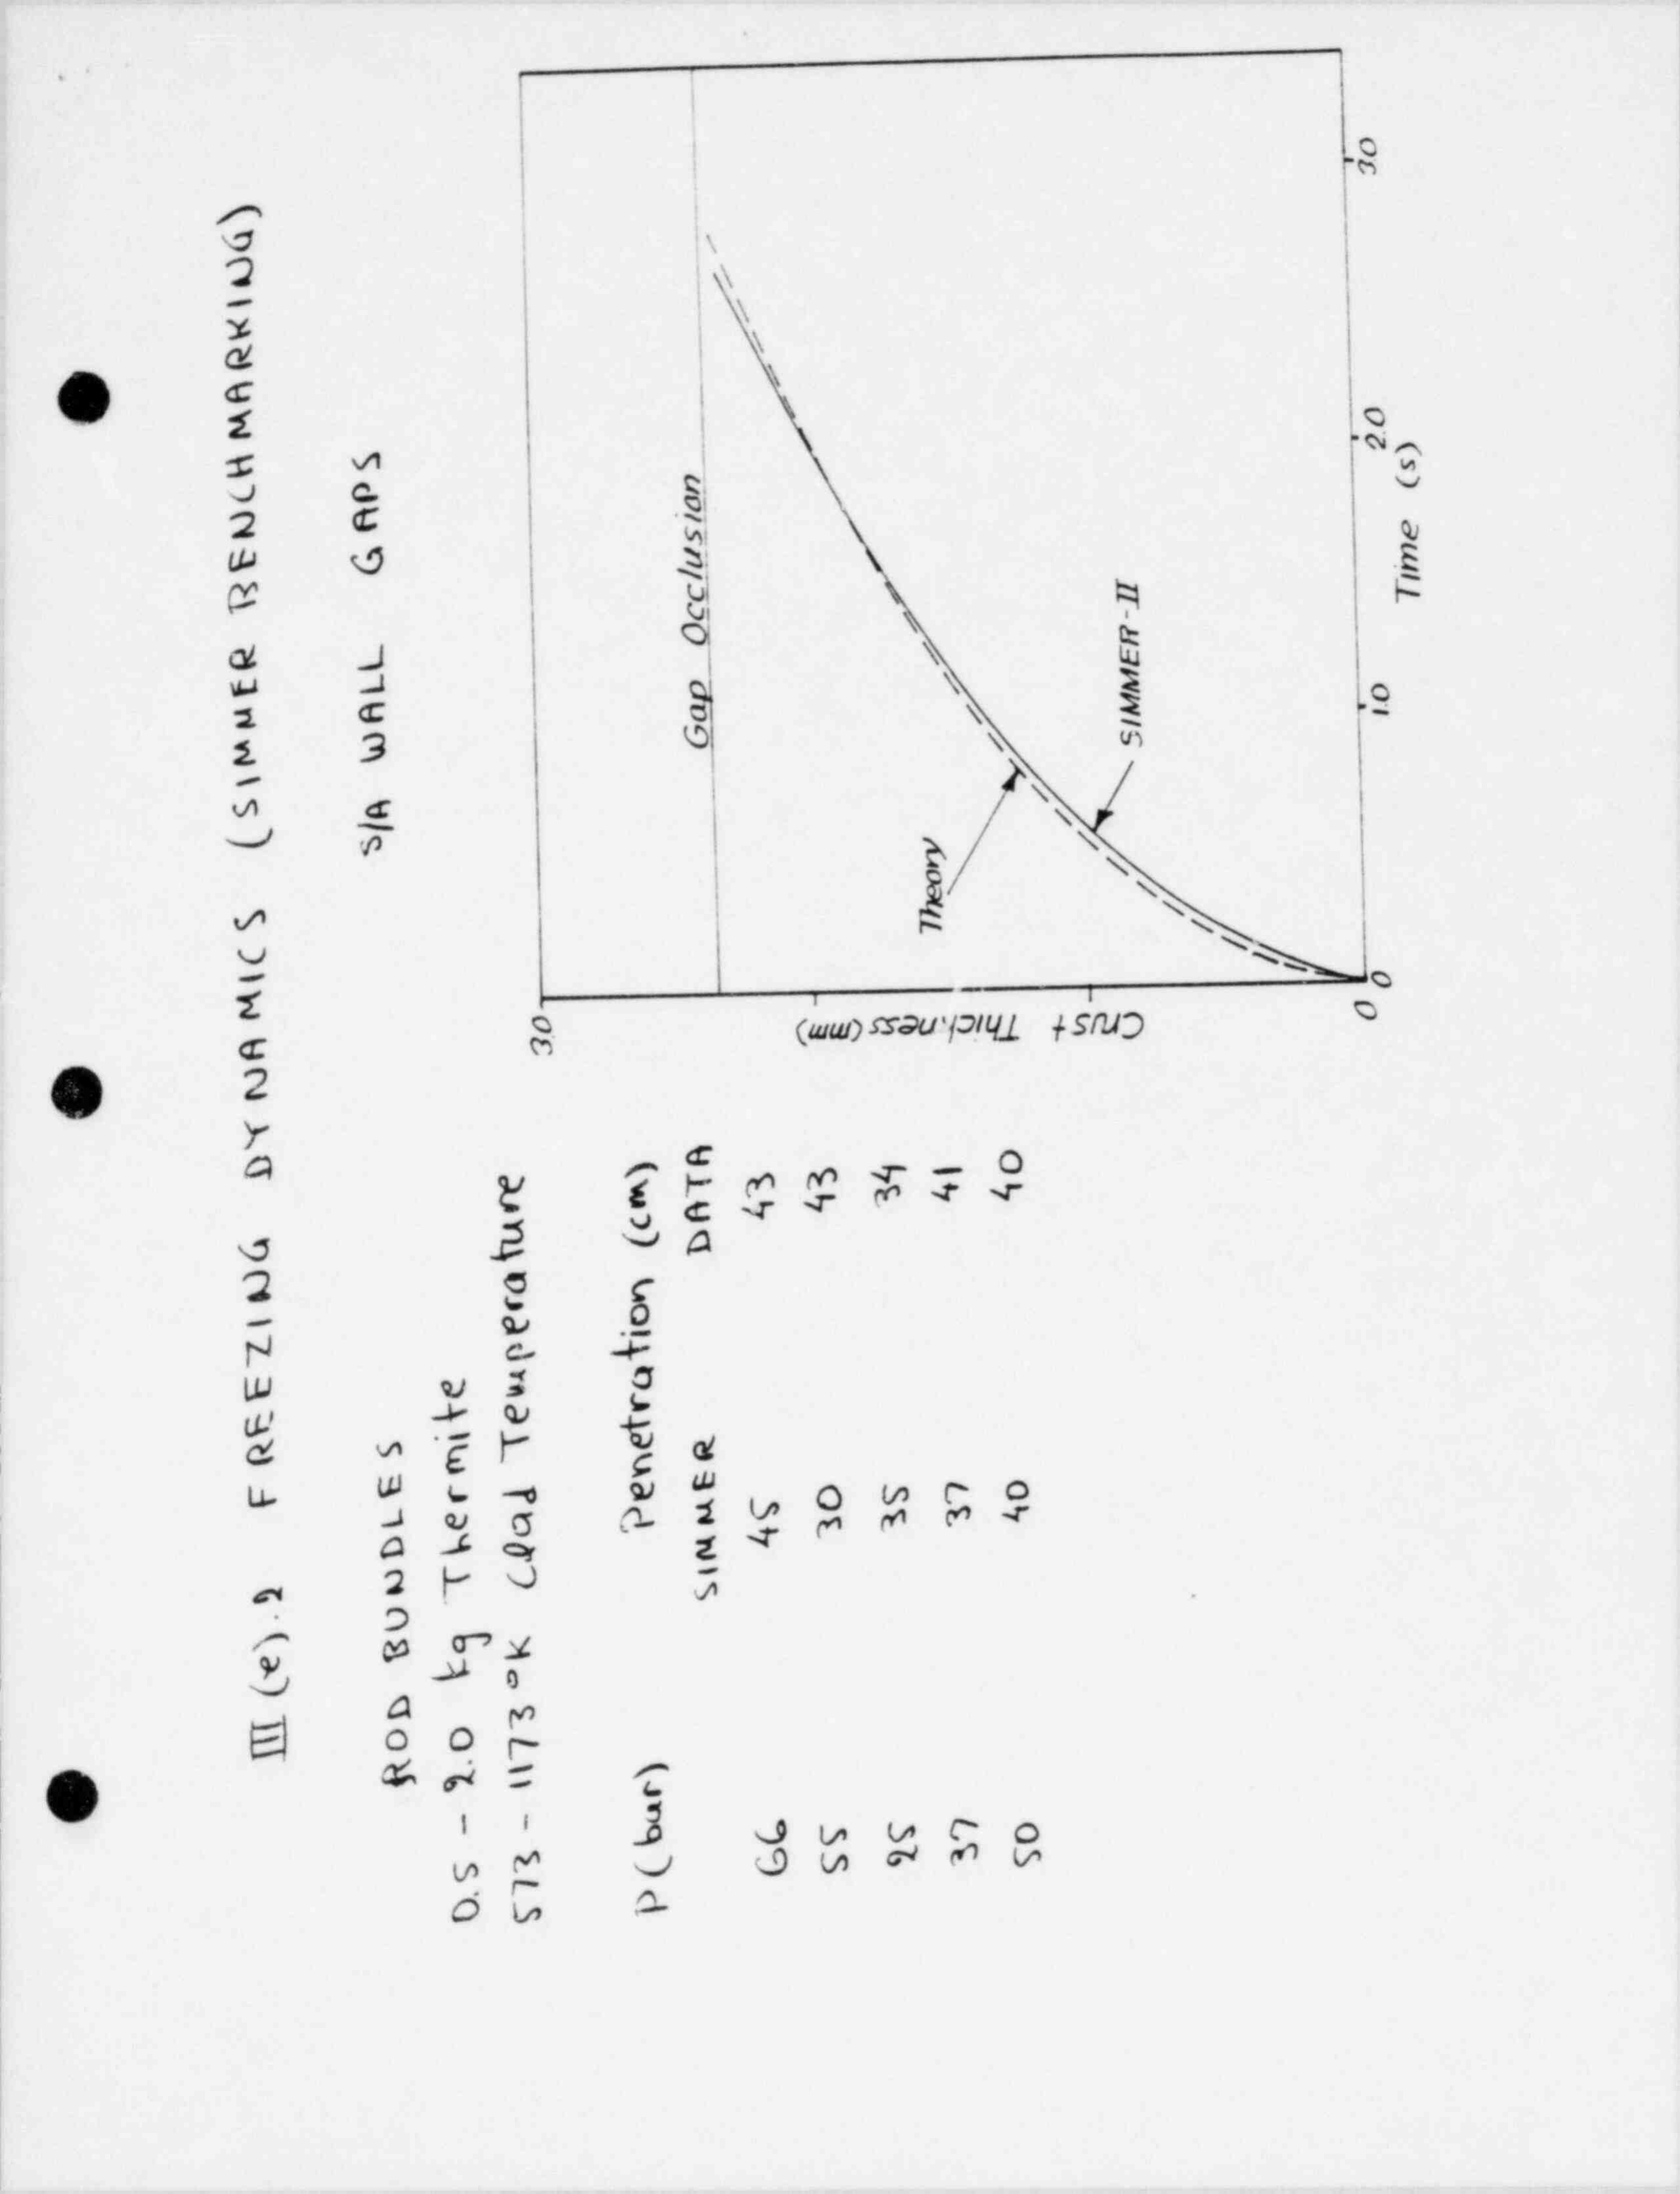 III (e).2 FREEZING DYNAMICS (SIMMER BENCHMARKING)
ROD BUNDLES
0.5 - 2.0 kg Thermite
573 - 1173 °K Clad Temperature
P (bar) Penetration (cm)
SIMMER DATA
66 45 43
55 30 43
25 35 34
37 37 41
50 40 40
S/A WALL GAPS
3.0
Gap Occlusion
Crust Thickness (mm)
Theory
SIMMER-II
0
0 1.0 2.0 3.0
Time (s)